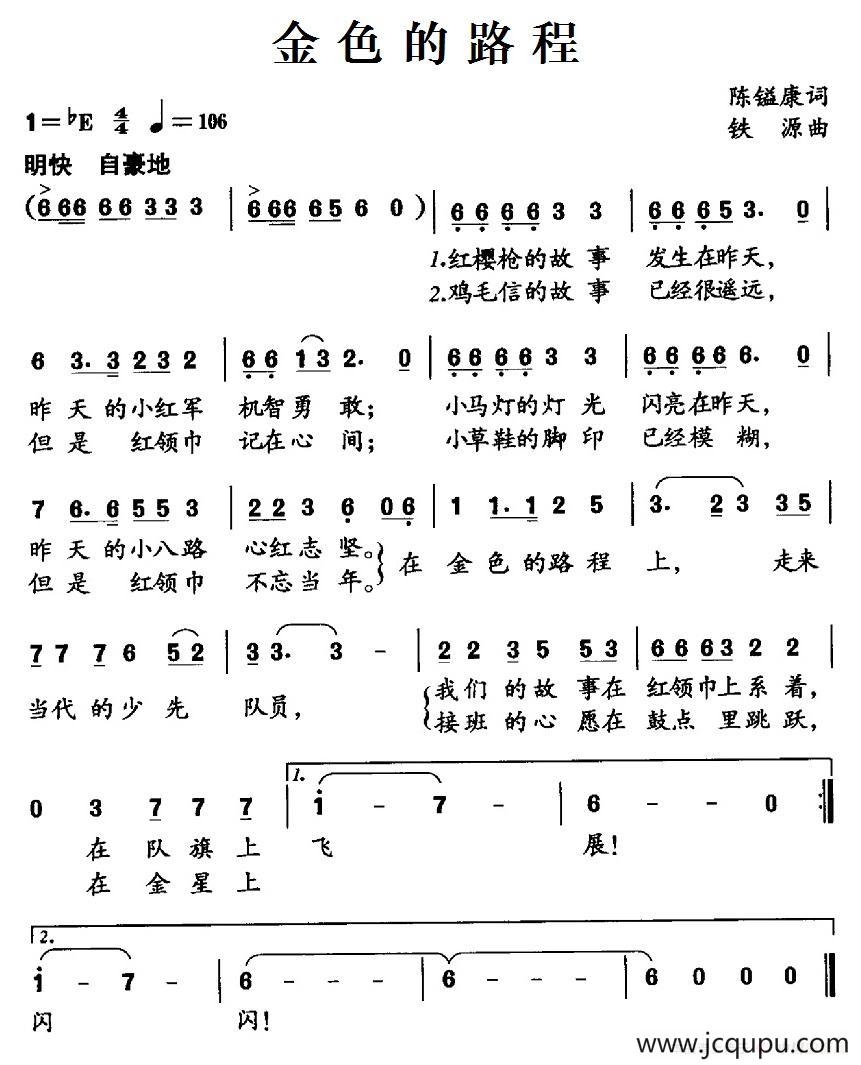 金色的路程
1=♭E 4/4 ♩=106
陈镒康词
铁 源曲
明快 自豪地
(6 66 66 33 3 | 6 66 65 6 0) | 66 66 3 3 | 66 65 3. 0
1.红樱枪的故 事 发生在昨天,
2.鸡毛信的故 事 已经很遥远,
6 3. 3 23 2 | 66 13 2. 0 | 66 66 3 3 | 66 66 6. 0
昨 天 的小红军 机智勇 敢; 小马灯的灯 光 闪亮在昨天,
但 是 红领巾 记在心 间; 小草鞋的脚 印 已经模 糊,
7 6. 6 55 3 | 22 3 6 06 | 1 1. 1 2 5 | 3. 2 3 35
昨 天 的小八路 心红志 坚。 在 金 色 的路 程 上, 走来
但 是 红领巾 不忘当 年。
7 7 7 6 52 | 3 3. 3 - | 2 2 3 5 53 | 66 63 2 2
当代 的少 先 队员, 我们 的故 事在 红领巾上系 着,
接班 的心 愿在 鼓点 里跳跃,
0 3 7 7 7 | 1. 1 - 7 - | 6 - - 0
在 队 旗 上 飞 展!
在 金 星 上
2.
1 - 7 - | 6 - - - | 6 - - - | 6 0 0 0
闪 闪!
www.jcqupu.com